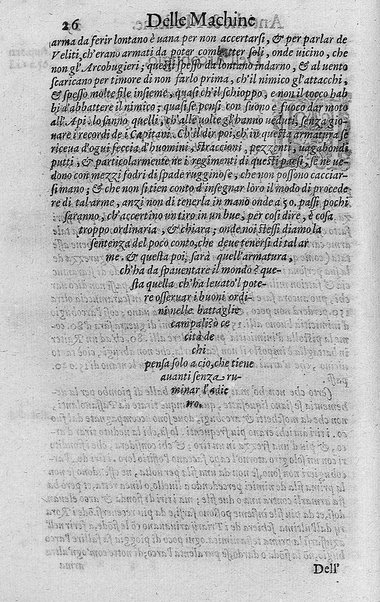 26 Delle Machine
arma da ferir lontano è uana per non accertarsi, & per parlar de
Veliti, ch'erano armati da poter combatter soli, onde uicino, che
non gl'Arcobugieri; questi spesso da lontano indarno, & al uento
scaricano per timore di non farlo prima, ch'il nimico gl'attacchi,
& spesso molte file insieme, quasi ch'il schioppo, e non il tocco hab
bi d'abbattere il nimico; quasi se pensi con suono e fuoco dar moto
all'Api. lo sanno quelli, ch'alle uolte gl'hanno ueduti, senza gio-
uare i recordi de i Capitani. Ch'il dir poi, ch'in questa armatura se
riceua d'ogni feccia d'huomini, straccioni, pezzenti, uagabondi
putti, & particolarmente ne i regimenti di questi paesi, se ne ue
dono con mezzi fodri di spade rugginose, che non possono cacciar
si mano; & che non si tien conto d'insegnar loro il modo di procede
re di tal arme, anzi non di tenerla in mano onde a 50. passi pochi
saranno, ch'accertino un tiro in un bue, per cosi dire, è cosa
troppo ordinaria, & chiara; onde noi stessi diamo la
sentenza del poco conto, che deue tenersi di tal ar
me. & questa poi, sarà quell'armatura,
ch'ha da spauentare il mondo? que-
sta quella ch'ha leuato'l pote-
re osseruar i buoni ordi-
ni nelle battaglie
campali? o ce
cità de
chi
pensa solo a cio, che tiene
auanti senza ru-
minar l'adie
tro.
Dell'